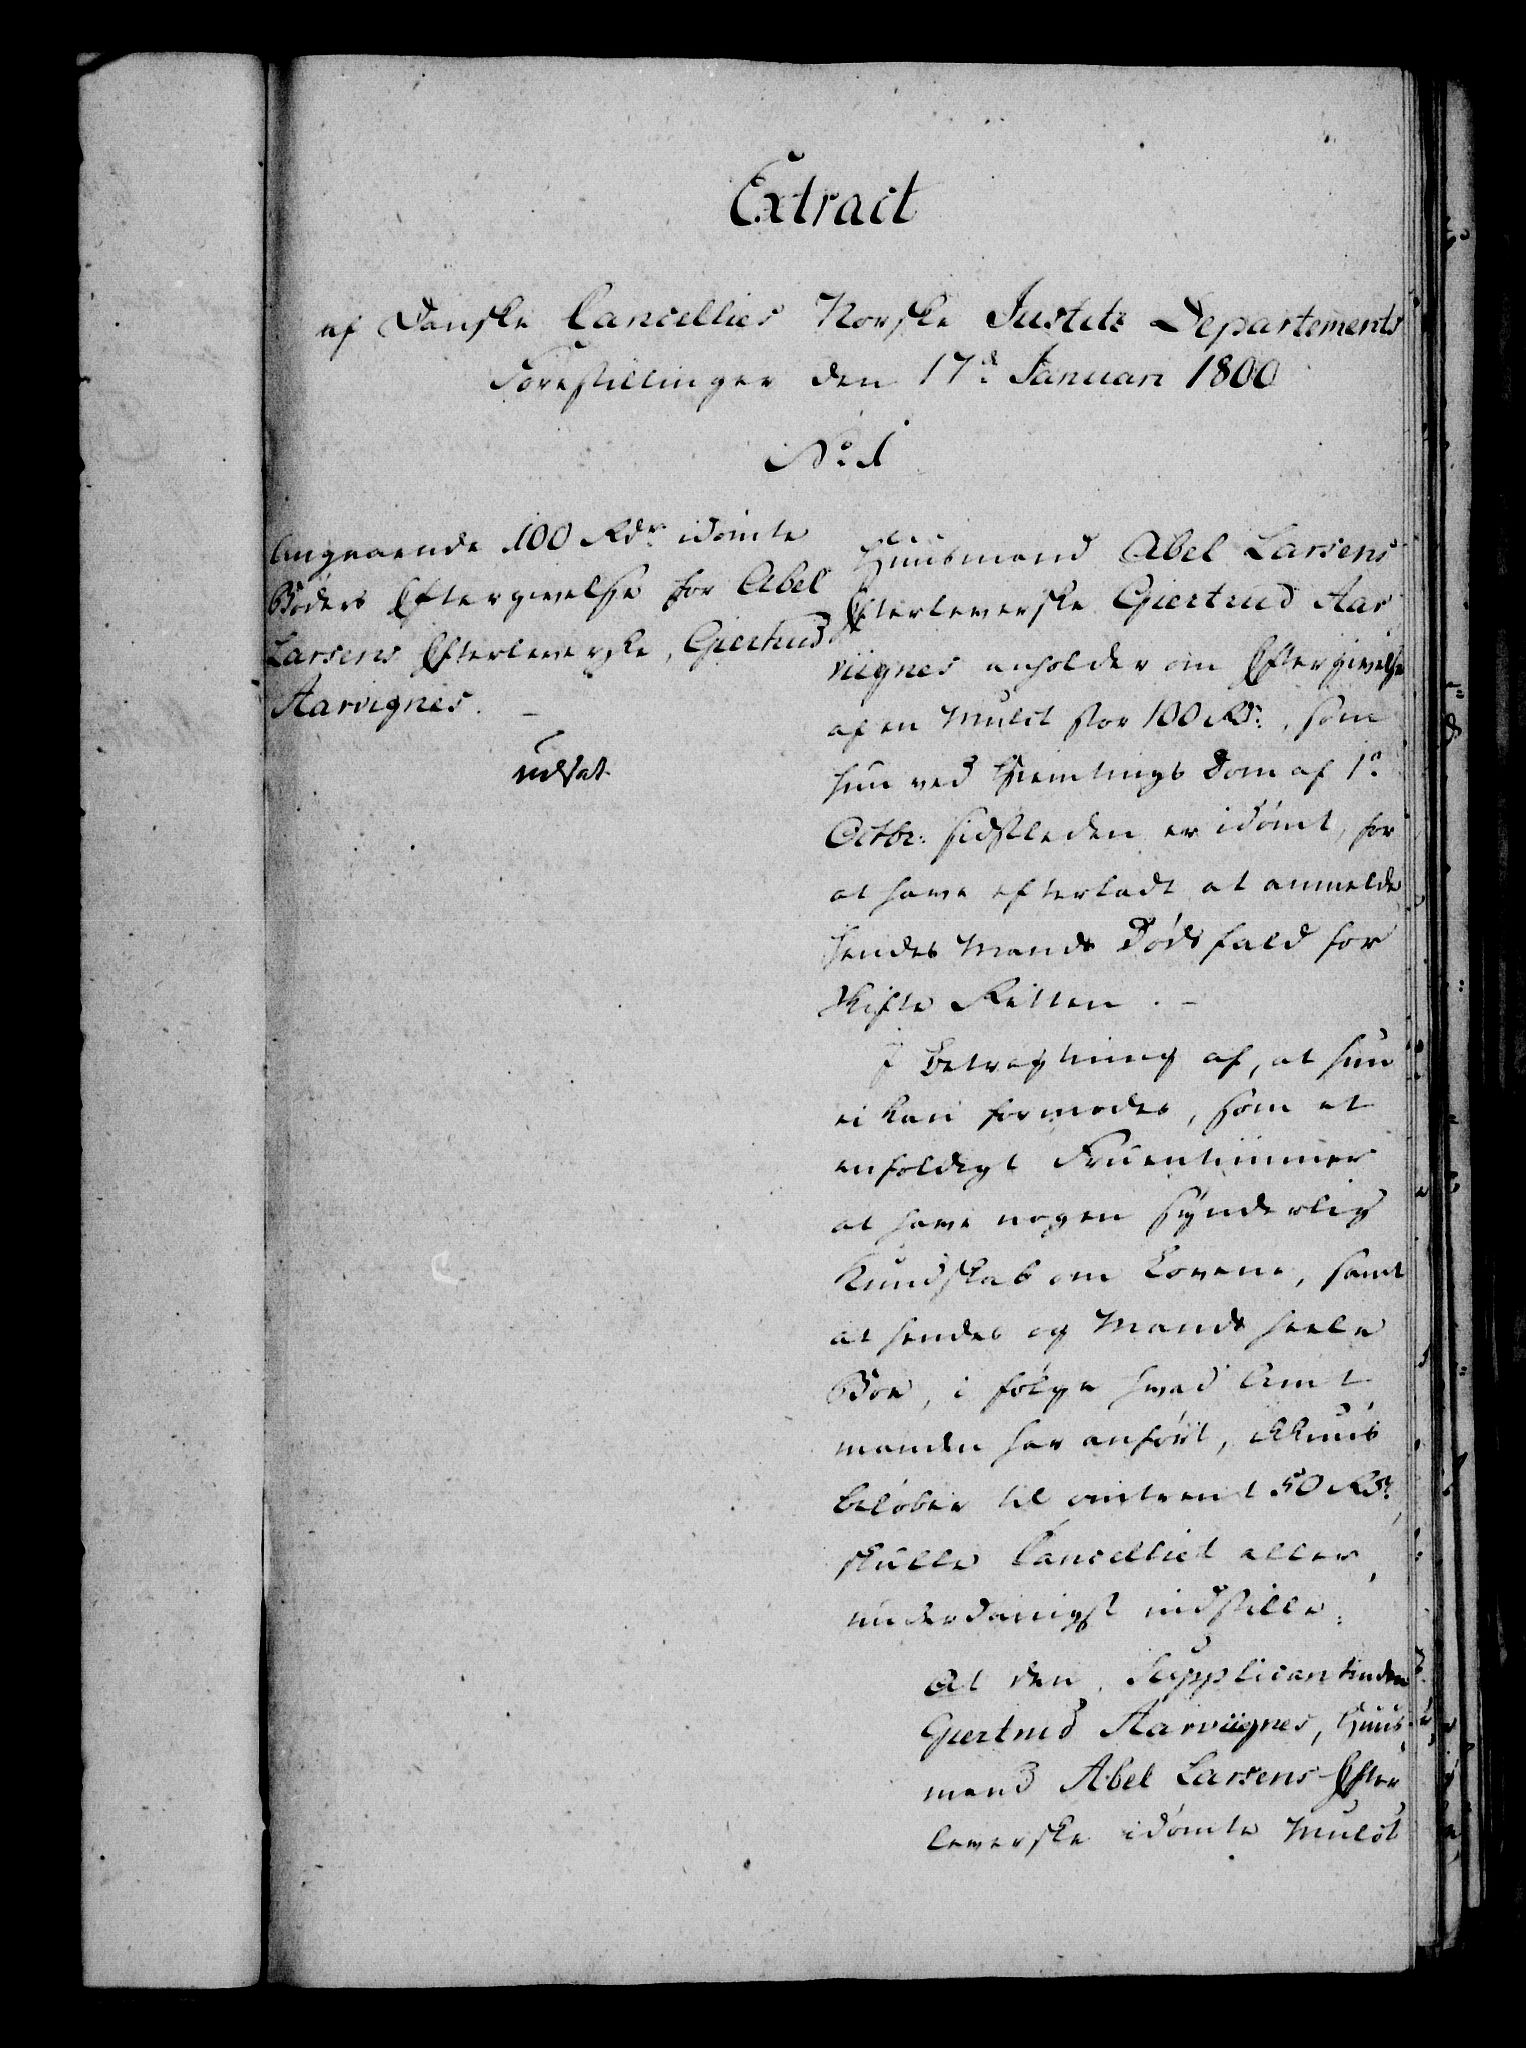 Extract
af Danske Cancellies Norske Justitz Departements
Forestillinger den 17d. Januari 1800
No. 1
Angaaende 100 Rdr. idømte
Bøders Eftergivelse for Abel
Larsens Efterleverske, Giertrud
Aarvignes. –
udsat
Huusmand Abel Larsens
Efterleverske Giertrud Aar
viignes anholder om Eftergivelse
af en Mulct stor 100 Rd., som
hun ved Hiemtings Dom af 1.
Octbr. sidstleden er idømt, for
at have efterladt at anmelde
hendes Mands Dødsfald for
Skifte Retten. –
I Betragtning af, at hun
ei kan formodes, som et
enfoldigt Fruentimmer
at have nogen synderlig
Kundskab om Lovene, samt
at hendes og Mands heele
Boe, i følge hvad Amt
manden har anført, ikkuns
beløber til omtrent 50 Rd.,
skulle Cancelliet aller
underdanigst indstille:
At den, Supplicantinden
Giertrud Aarviignes, Huus-
mand Abel Larsens Efter
leverske idømte Mulct